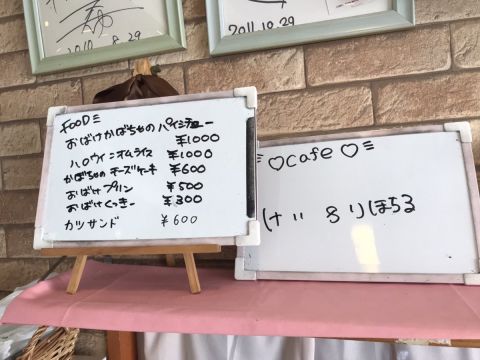 2010.8.29
2011.10.29
FOOD
おばけかぼちゃのパイシチュー
¥1000
ハロウィンオムライス ¥1000
かぼちゃのチーズケーキ ¥600
おばけプリン ¥500
おばけくっきー ¥300
カツサンド ¥600
♡cafe♡